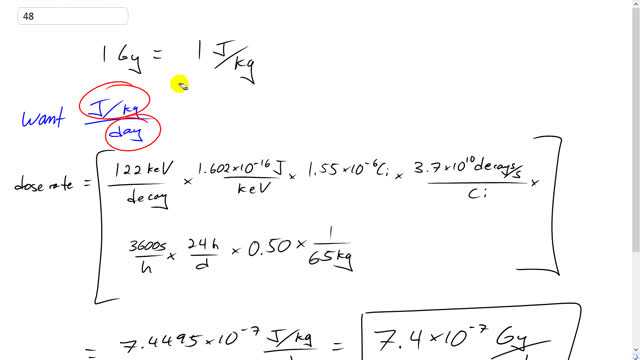 48
1 Gy = 1 J/kg
want J/kg
day
dose rate = [ 122 keV / decay × 1.602×10⁻¹⁶ J / keV × 1.55×10⁻⁶ Ci × 3.7×10¹⁰ decays/s / Ci ×
3600s / h × 24h / d × 0.50 × 1 / 65kg ]
= 7.4495×10⁻⁷ J/kg = 7.4×10⁻⁷ Gy